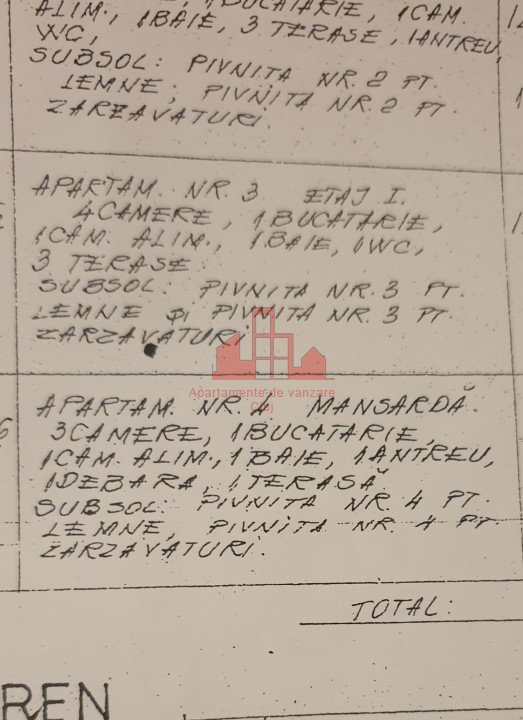 BUCATARIE, 1CAM.
ALIM., 1BAIE, 3 TERASE, 1ANTREU,
WC,
SUBSOL: PIVNITA NR. 2 PT.
LEMNE; PIVNITA NR. 2 PT.
ZARZAVATURI.
APARTAM. NR. 3 ETAJ I.
4CAMERE, 1BUCATARIE,
1CAM. ALIM., 1BAIE, 1WC,
3 TERASE.
SUBSOL: PIVNITA NR. 3 PT.
LEMNE și PIVNITA NR. 3 PT.
ZARZAVATURI
Apartamente de vanzare
Cluj
6
APARTAM. NR. 4 MANSARDĂ.
3CAMERE, 1BUCATARIE,
1CAM. ALIM., 1BAIE, 1ANTREU,
1DEBARA, 1TERASĂ
SUBSOL: PIVNITA NR. 4 PT.
LEMNE, PIVNITA NR. 4 PT
ZARZAVATURI.
TOTAL:
REN